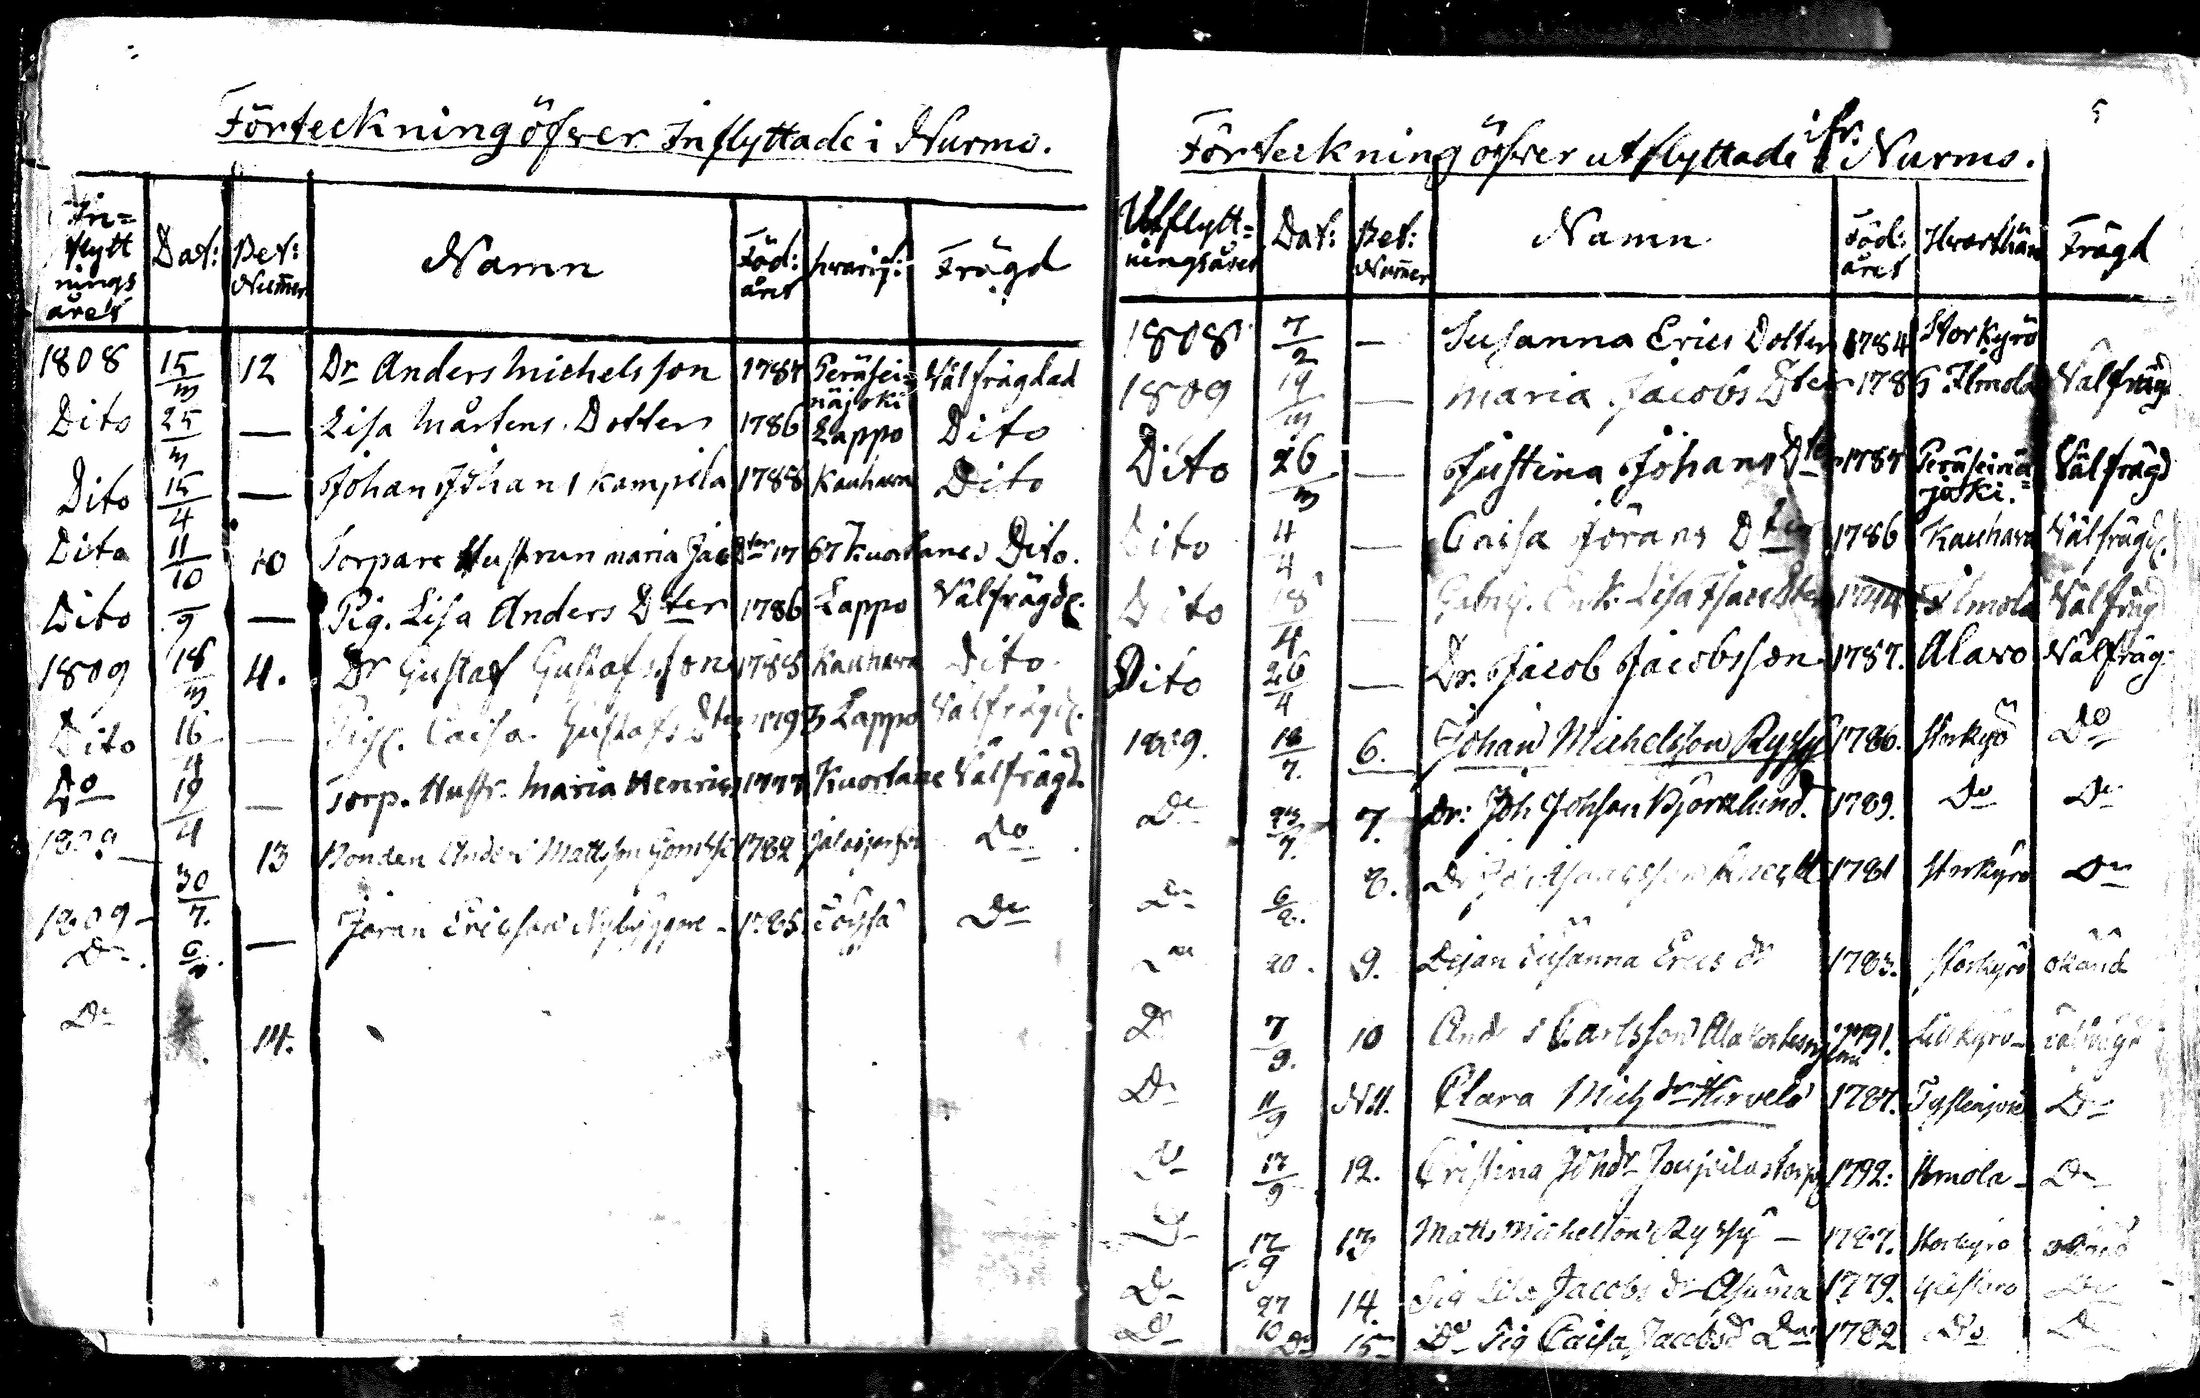 Förteckning öfwer Inflyttade i Nurmo.
In=flyttningsåret Dat: Bet: Num̄er Namn Föd: året hvarif: Frägd
1808 15/3 12 Dr. Anders Michelsson 1787 Peräseinäjoki Välfrägdad
Dito 25/3 — Lisa Mårtens Dotter 1786 Lappo Dito
Dito 15/4 — Johan Johans kampila 1788 Kauhava Dito
Dito 11/10 10 Torpare Hustrun Maria Jac Dter 1767 Kuortanes Dito.
Dito /9 — Pig. Lisa Anders Dter 1786 Lappo Välfrägd.
1809 18/3 4. Dr Gustaf Gustafsson 1788 Kauhava Dito
Dito 16/4 — Pig. Caisa Gustafs Dter 1793 Lappo Välfrägd.
Do 19/4 — Torp. Hustr. Maria Henrics 1777 Kuortane Välfrägd.
1809 13 Bonden Anders Mattsson 1782 Do
1809 30/7. Jöran Ericsson Nybyggare 1785 Töysä Do
Do. 6/8. —
Do 14.
5
Förteckning öfwer utflyttade ifr. Nurmo.
Utflyttningsåret Dat: Bet: Num̄er Namn Föd: året Hvarthän Frägd
1808 7/2 — Susanna Erics Dotter 1784 Storkyrö
1809 19/3 — Maria Jacobs Dter 1786 Ilmola Välfrägd
Dito 26/3 — Justina Johans Dter 1787 Peräseinäjoki. Välfrägd
Dito 4/4 — Caisa Jörans Dter 1786 Kauhava Välfrägd.
Dito 18/4 — Enk. Lisa Isacs Dter 1744 Ilmola Välfrägd
Dito 26/4 — Dr. Jacob Jacobsson 1787. Alavo Välfräg.
1809. 18/7. 6. Johan Michelsson Ryssy 1786. Storkyrö Do
Do 23/7. 7. Dr: Joh Johsson Björklund. 1789. Do Do
Do 6/8. 8. Dr 1781 Storkyro Do
Do 20. 9. Dejan Susanna Erics dr 1783. Storkyrö okänd
Do 7/9. 10 And s Carlsson 1791. Lillkyro välfrägd
Do 11/9 N 11. Clara Mich dr Hirvelä 1787. Do
Do 17/9 12. Cristina Joh dr 1792: Ilmola Do
Do 17/9 13 Matts Michelsson Ryssy — 1787. Storkyro okänd
Do 27/10 14. Pig Lisa Jacobs dr Asuma 1779. Ylistaro Do
Do Do 15 Do Pig Caisa Jacobs dr Do 1782 Do Do